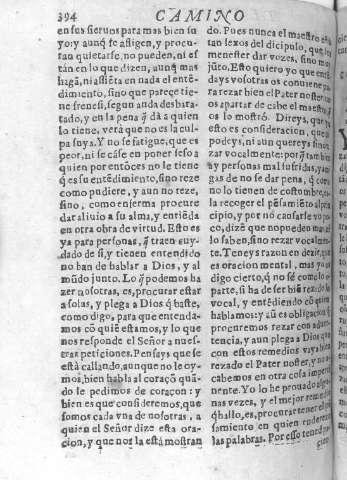 394 CAMINO
en sus sieruos para mas bien su
yo: y aunq̃ te afligen, y procu-
ran quietarse, no pueden, ni es
tan en lo que dizen, aunq̃ mas
hagã, ni assiẽta en nada el ente-
dimiento, sino que parece tie-
ne frenesi, segun anda desbara-
tado, y en la pena q̃ dà a quien
lo tiene, verà que no es la cul-
pa suya. Y no se fatigue, que es
peor, ni se cãse en poner seso a
quien por entõces no le tiene
q̃ es su entendimiento, sino reze
como pudiere, y aun no reze,
sino, como enferma procure
dar aliuio a su alma, y entiẽda
en otra obra de virtud. Esto es
ya para personas, q̃ traen cuy-
dado de si, y tienen entendido
no han de hablar a Dios, y al
mũdo junto. Lo q̃ podemos ha
zer nosotras, es, procurar estar
a solas, y plega a Dios q̃ baste,
como digo, para que entenda-
mos cõ quiẽ estamos, y lo que
nos responde el Señor a nues-
tras peticiones. Pensays que se
està callando, aunque no le oy-
mos, bien habla al coraçõ quã-
do le pedimos de coraçon: y
bien es que consideremos, que
somos cada vna de nosotras, a
quien el Señor dize esta ora-
cion, y que nos la està mostran
do. Pues nunca el maestro està
tan lexos del dicipulo, que
menester dar vozes, sino muy
jũto. Esto quiero yo que entẽ-
days vosotras os conuiene pa-
ra rezar bien el Pater noster: no
os apartar de cabe el maestro
os lo mostrò. Direys, que ya
esto es consideracion, que no
podeys, ni aun quereys sino re-
zar vocalmente: porq̃ tambiẽ
ay personas mal sufridas, y am
gas de no se dar pena, q̃ como
no lo tienen de costumbre, es
la recoger el pẽsamiẽto al prin
cipio, y por nò cansarse vn po-
co, dizẽ que no pueden mas ni
lo saben, sino rezar vocalmen-
te. Teneys razon en dezir, que
es oracion mental, mas yo os
digo cierto, q̃ no sè como lo
parte, si ha de ser biẽ rezado lo
vocal, y entẽdiendo cõ quien
hablamos: y aũ es obligaciõ q̃
procuremos rezar con aduer-
tencia, y aun plega a Dios que
con estos remedios vaya bien
rezado el Pater noster, y no
cabemos en otra cosa imperti-
nente. Yo lo he prouado algu-
nas vezes, y el mejor remedio
q̃ hallo, es, procurar tener el pẽ-
samiento en quien endereço
las palabras. Por esso tened pa-
cien